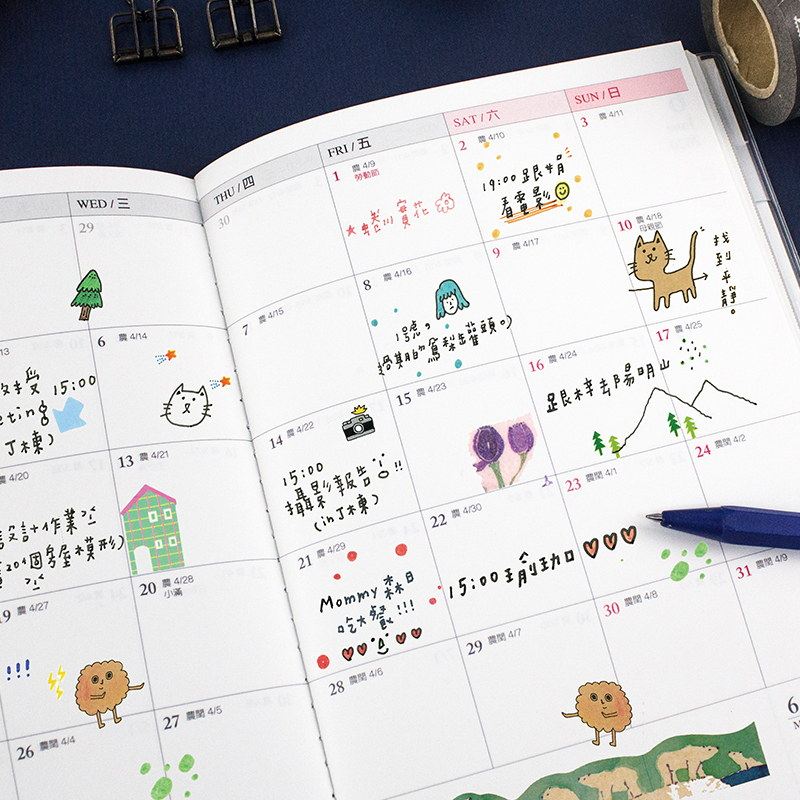 WED / 三
THU / 四
FRI / 五
SAT / 六
SUN / 日
29
30
1 農 4/9
勞動節
賞花
2 農 4/10
19:00 跟
看電影
3 農 4/11
13
15:00
eting
J棟)
6 農 4/14
7 農 4/15
8 農 4/16
1號。
過期的鳳梨罐頭。)
9 農 4/17
10 農 4/18
母親節
找到平靜。
4/20
設計作業
20個房屋模形)
13 農 4/21
14 農 4/22
15:00
攝影報告!!
(in J棟)
15 農 4/23
16 農 4/24
跟梓去陽明山
17 農 4/25
19 農 4/27
!!!
20 農 4/28
小滿
21 農 4/29
Mommy 森日
吃大餐!!!
22 農 4/30
15:00
23 農閏 4/1
24 農閏 4/2
26 農閏 4/4
27 農閏 4/5
28 農閏 4/6
29 農閏 4/7
30 農閏 4/8
31 農閏 4/9
6